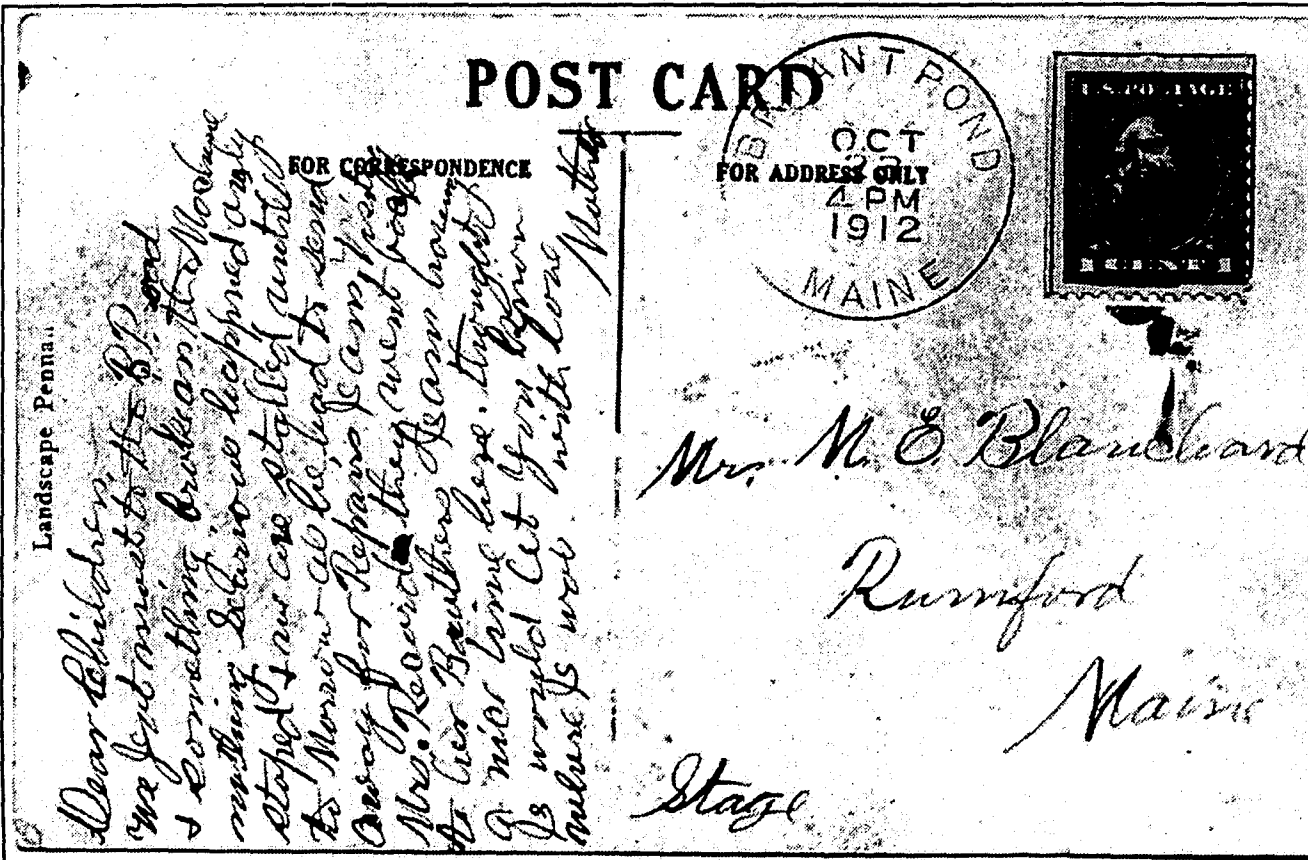 POST CARD
FOR CORRESPONDENCE
FOR ADDRESS ONLY
BRYANT POND
OCT
4 PM
1912
MAINE
U.S. POSTAGE
CENTS
Landscape Penna.
Dear Children,
We got most to B.P. and
& something broke on the Machine
nothing Serious happned only
stoped & we are stalled until
to Morrow as he had to send
away for Repairs
Mrs. they went
to her Brothers I am having
a nice time here. thought
I would let you know
where I was with love
Mother
Mr. M. E. Blanchard
Rumford
Maine
Stage